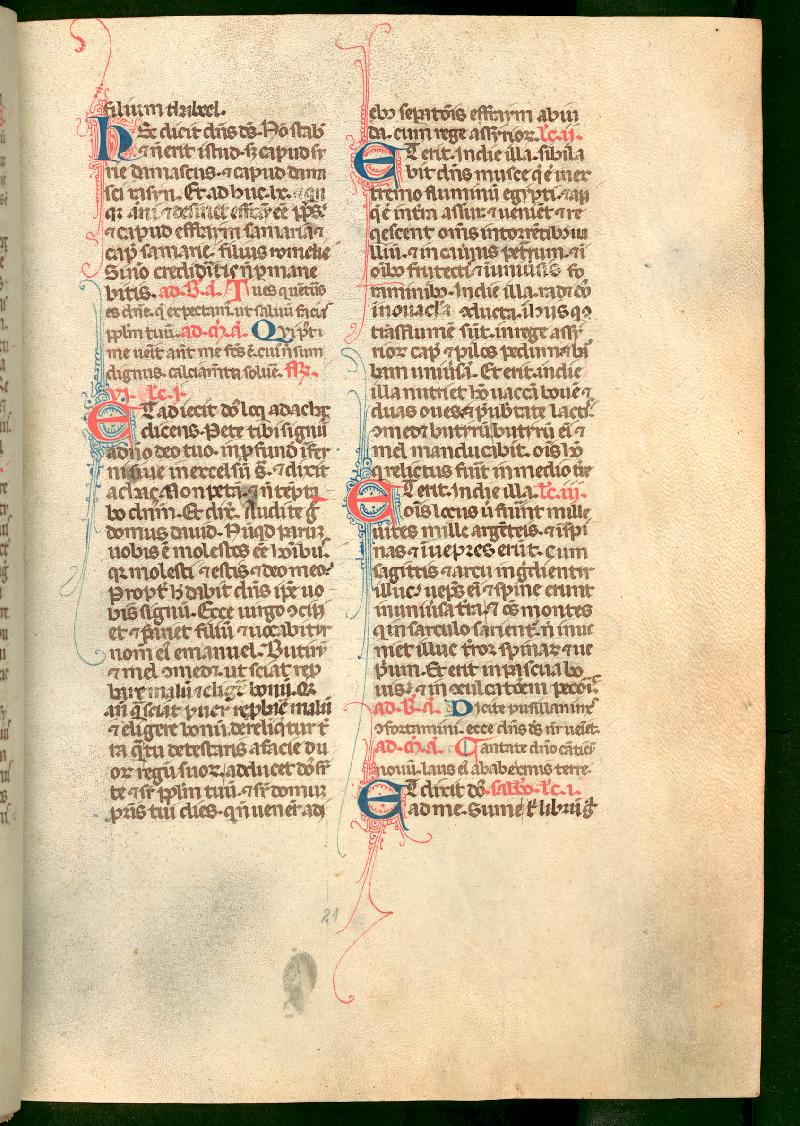 filium thabeel.
Hec dicit dn̄s ds̄. Nō stab̄
⁊ n̄ erit istud. sꝫ capud sy
rie damascus. ⁊ capud dama
sci rasyn. Et ad huc. lx. ⁊ qn
qꝫ ām ⁊ desinet effraym eē ppl̄s.
⁊ capud effraym samaria ⁊
cap̄ samarie. filius romelie
Si nō credid̄itis n̄ pmane
bitis. ad. B. ā. Tu es quē uētus
es dn̄e. q̄ expectam̄. ut saluū faciās
ppl̄m tuū. ad. m̄. ā. Qui p̄t
me uenit ant̄ me fc̄s ē. cui n̄ sum
dignus. calciam̄ta soluē.
vi. lc̄. i.
Et adiecit dn̄s loq̄ ad achaz
dicens. Pete tibi signū
a dn̄o deo tuo. in pfund īfer
ni siue in excelsū s̄. ⁊ dixit
achaz. Non petā. ⁊ n̄ tēpta
bo dn̄m. Et dix̄. Audite g̊
domus dauid. Nūqd parū
uobis ē molestos eē hoību.
qꝛ molesti ⁊ estis ⁊ deo meo.
Propt̄ h̄ dabit dn̄s ipe uo
bis signū. Ecce uirgo ꝯcip
et ⁊ pariet filiū ⁊ uocabitur
nom̄ ei emanuel. Butirū
⁊ mel ꝯmedꝫ. ut sciat rep
bare malū ⁊ eligē bonū. Qꝛ
an̄ q̄ sciat puer repbare malū
⁊ eligere bonū. derelīqtur t̄
ra q̄ tu detestaris a facie du
or regū suor. adducet dn̄s sr̄
te ⁊ sr̄ pplm̄ tuū. ⁊ sr̄ domū
p̄ris tui dies. qn̄ uenēr a di
ebꝫ sepatōis effraym a iu
da. cum rege assyrior. lc̄. ii.
Et erit. In die illa. sibila
bit dn̄s musce q̄ ē in ex
tremo fluminū egypti. ⁊ api
q̄ ē in t̄ra assur. ⁊ uenīet ⁊ re
qescent om̄s in torrentibꝫ ua
lliū. ⁊ in cauernis petrarum. ⁊ ī
oībꝫ frutectis ⁊ ī uniūsis fo
raminibꝫ. In die illa. radet dn̄s
in nouacla ꝯducta. ī hiis q̄
trāsflumē sūt. in rege assy
rior. cap̄ ⁊ pilos pedum ⁊ bar
bam uniūsā. Et erit. in die
illa nutriet hō uaccā bouē ⁊
duas oues. ⁊ p̄ ubtate lactis
ꝯmedꝫ butyrū. butyrū ei ⁊
mel manducabit. oīs hō
q̄ relictus fuit in medio tr̄e
Et erit. In die illa. lc̄. iii.
oīs locus ū fuīnt mille
uites mille argēteis. ⁊ ī spi
nas ⁊ ī uepres erūt. Cum
sagittis ⁊ arcu ingredientur
illuc. uepres ei ⁊ spine erunt
in uniūsa t̄ra. ⁊ oēs montes
q̄ in sarculo sarient. n̄ inue
niet illuc t̄ror spinar ⁊ ue
prium. Et erit in pascua bo
uis. ⁊ in ꝯculcatōem pecoris.
ad. B. ā. Dicite pusillanimes
ꝯfortamini. ecce dn̄s ds̄ nr̄ ueniet.
ad. m̄. ā. Cantate dn̄o cāticū
nouū. laus ei ab abextremis terre.
Et dixit dn̄s. sabbo. lc̄. i.
ad me. Sume t̄ librū g̊
21